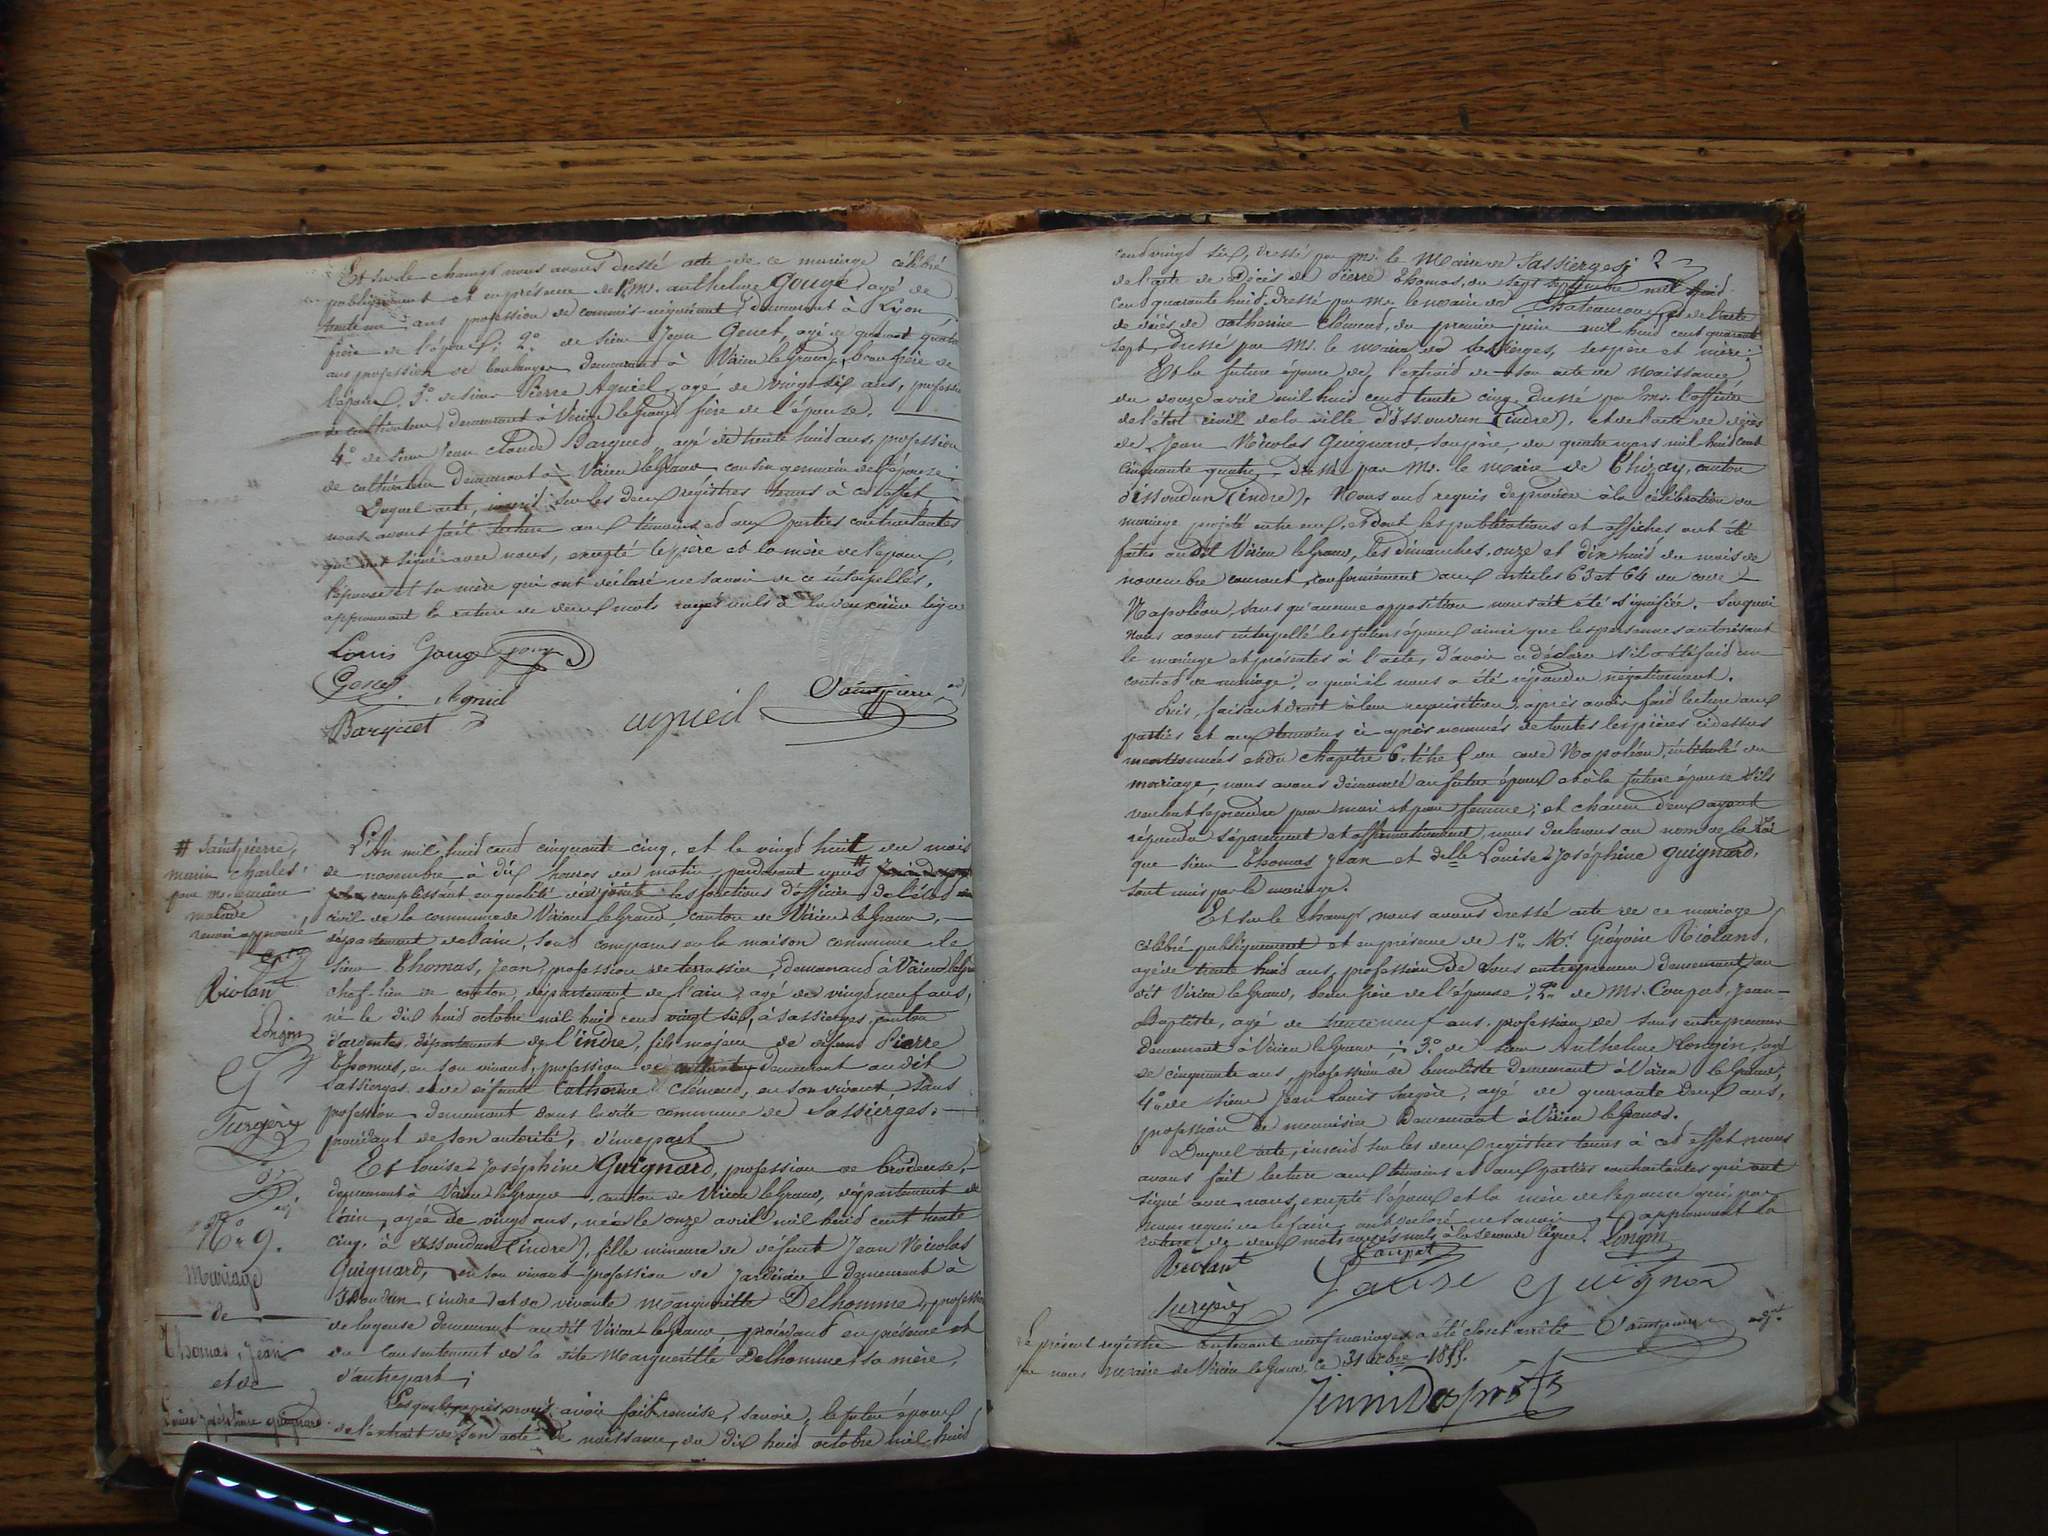 Et sur le champs nous avons dressé acte de ce mariage célébré
publiquement et en présence de 1° mr. anthelme Gouge, agé de
trente un ans profession de commis-négociant, demeurant à Lyon,
frère de l'époux; 2° de sieur Jean Genet, agé de quarante quatre
ans profession de boulanger demeurant à Virieu le Grand, beau frère de
l'époux. 3° de sieur Pierre Agniel, agé de vingt six ans, profession
de cultivateur, demeurant à Virieu le Grand frère de l'épouse.
4° de sieur Jean Claude Barquet, agé de trente huit ans, profession
de cultivateur demeurant à Virieu le Grand, cousin germain de l'épouse.
Duquel acte, inscrit sur les deux régistres tenus à cet effet,
nous avons fait lecture aux témoins et aux parties contractantes
qui ont signé avec nous, excepté le père et la mère de l'époux,
l'épouse et sa mère qui ont déclaré ne savoir de ce intérpellés.
approuvant la rature de deux mots rayés nuls à la deuxième ligne
Louis Gouge époux
Genet Agniel
Barquet agnied Saintpierre, adj
# Saintpierre,
marin charles,
pour mr. le maire
malade
renvoi approuvé
Riolant
Longin
Surgère
N° 9.
Mariage
de
Thomas, Jean
et de
Louise Joséphine guignard
L'An mil huit cent cinquante cinq, et le vingt huit du mois
de novembre à dix heures du matin, pardevant nous #
remplissant en qualité d'adjoint les fonctions d'officier de l'état
civil de la commune de Virieu le Grand, canton de Virieu le Grand,
département de l'ain, sont comparus en la maison commune le
sieur Thomas, Jean, profession de terrassier, demeurant à Virieu le Grand
chef-lieu de canton, département de l'ain, agé de vingt neuf ans,
né le dix huit octobre mil huit cent vingt six, à Sassierges, canton
d'ardentes, département de l'indre, fils majeur de défunt Pierre
Thomas, en son vivant, profession de cultivateur demeurant au dit
Sassierges et de défunte Catherine Clémend, en son vivant sans
profession demeurant dans la dite commune de Sassiérges.
procédant de son autorité, d'une part
Et Louise Joséphine Guignard, profession de brodeuse,
demeurant à Virieu le Grand, canton de Virieu le Grand, département de
l'ain, agée de vingt ans, née le onze avril mil huit cent trente
cinq, à issoudun (indre), fille mineure de défunt Jean Nicolas
Guignard, en son vivant profession de Jardinier demeurant à
issoudun (indre) et de vivante Marguerite Delhomme, profession
de logeuse demeurant au dit Virieu le Grand, procédant en présence et
du consentement de la dite Marguerite Delhomme, sa mère,
d'autre part;
Lesquels après nous avoir fait remise, savoir; le futur époux
de l'extrait de son acte de naissance, du dix huit octobre mil huit
cent vingt six, dressé par mr. le Maire de Sassierges;
de l'acte de décès de Pierre Thomas, du sept septembre mil huit
cent quarante huit, dressé par mr. le maire de Chateauroux, et de l'acte
de décès de Catherine Clémend, du premier juin mil huit cent quarante
sept, dressé par Mr. le maire de Sassierges, ses père et mère;
Et la future épouse de l'extrait de son acte de Naissance,
du onze avril mil huit cent trente cinq, dressé par Mr. l'officier
de l'état civil de la ville d'Issoudun (indre), et de l'acte de décès
de Jean Nicolas Guignard, son père, du quatre mars mil huit cent
Cinquante quatre, dressé par Mr. le maire de Thizay, canton
d'issoudun (indre), Nous ont requis de procéder à la célébration du
mariage projeté entre eux, et dont les publications et affiches ont été
faites au dit Virieu le Grand, les dimanches onze et dix huit du mois de
novembre courant, conformément aux articles 63 et 64 du code
Napoléon, sans qu'aucune opposition nous ait été signifiée. Sur quoi
nous avons interpellé les futurs époux ainsi que les personnes autorisant
le mariage et présentes à l'acte, d'avoir à déclarer s'il a été fait un
contrat de mariage, a quoi il nous a été répondu négativement.
Puis, faisant droit à leur requisition, après avoir fait lecture aux
parties et aux témoins ci après nommés de toutes les pièces ci dessus
mentionnées et du chapitre 6, titre 5 du code Napoléon, intitulé du
mariage, nous avons demandé au futur époux et à la future épouse s'ils
veulent se prendre pour mari et pour femme; et chacun d'eux ayant
répondu séparément et affirmativement, nous declarons au nom de la Loi
que sieur Thomas Jean et delle Louise Joséphine Guignard,
sont unis par le mariage.
Et sur le champ, nous avons dressé acte de ce mariage
célébré publiquement et en présence de 1° Mr Grégoire Riolant,
agé de trente huit ans, profession de sous entrepreneur demeurant au
dit Virieu le Grand, beau frère de l'épouse; 2° de Mr. Coupat, Jean
Baptiste, agé de trente neuf ans, profession de sous entrepreneur
demeurant à Virieu le Grand; 3° de sieur Anthelme Longin, agé
de cinquante ans, profession de buraliste demeurant à Virieu le Grand;
4° de sieur Jean Louis Surgère, agé de quarante deux ans,
profession de menuisier Demeurant à Virieu le Grand.
Duquel acte, inscrit sur les deux registres tenus à cet effet, nous
avons fait lecture aux témoins et aux parties contractantes qui ont
signé avec nous, excepté l'époux et la mère de l'épouse qui, par
nous requis de le faire, ont déclaré ne savoir, approuvant la
rature de deux mots rayés nuls à la seconde ligne. Longin
Riolant Coupat
Louise Guignard
Surgère
Le présent registre contenant neuf mariages a été clos et arrêté Saintpierre adjt.
par nous maire de Virieu le Grand, ce 31 xbre 1855.